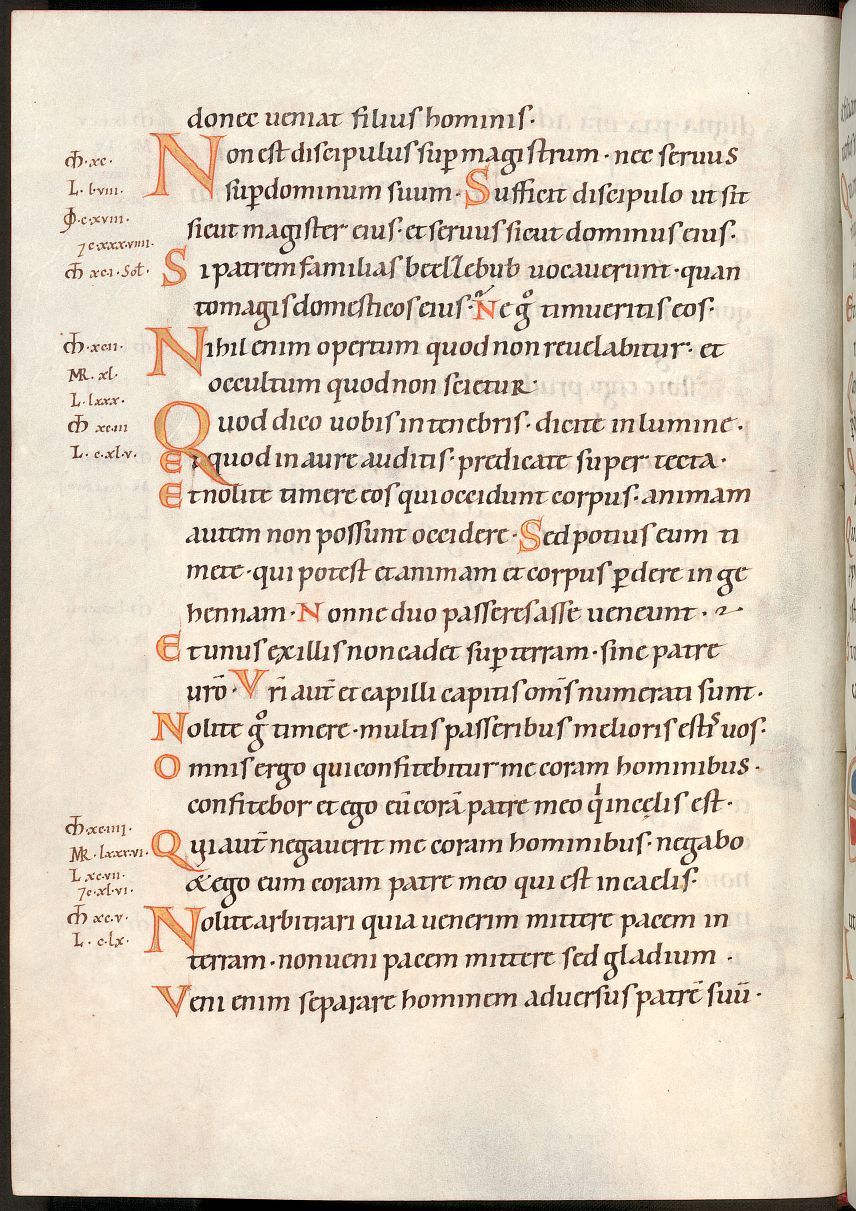 donec ueniat filius hominis·
Mh̄·xc· Non est discipulus sup̱ magistrum· nec seruus
L·lviii· sup̱ dominum suum· Sufficit discipulo ut sit
Ioh̄·c·xviii· sicut magister eius· et seruus sicut dominus eius·
⁊c·xxxviiii·
Mh̄ xci·Sol̄· Si patrem familias beelzebub uocauerunt· quan
to magis domesticos eius· Ne gͦ timueritis eos·
Mh̄·xcii· Nihil enim opertum quod non reuelabitur· et
MR·xl· occultum quod non scietur·
L·lxxx·
Mh̄ xciii Quod dico uobis in tenebris· dicite in lumine·
L·c·xlv· Et quod in aure auditis· predicate super tecta·
Et nolite timere eos qui occidunt corpus· animam
autem non possunt occidere· Sed potius eum ti
mete· qui potest et animam et corpus p̱dere in ge
hennam· Nonne duo passeres asse ueneunt·
Et unus ex illis non cadet sup̱ terram· sine patre
ur̄o· Vr̄i aut̄ et capilli capitis om̄s numerati sunt·
Nolite gͦ timere· multis passeribus melioris estis uos·
Omnis ergo qui confitebitur me coram hominibus·
confitebor et ego eū corā patre meo qͥ in celis est·
Mh̄·xciiii·
MR·lxxxvi· Qui aut̄ negauerit me coram hominibus· negabo
L xcvii· & ego eum coram patre meo qui est in caelis·
⁊c·xlvi·
Mh̄ xcv· Nolite arbitrari quia uenerim mittere pacem in
L·c·lx· terram· non ueni pacem mittere sed gladium·
Veni enim separare hominem aduersus patrē suū·